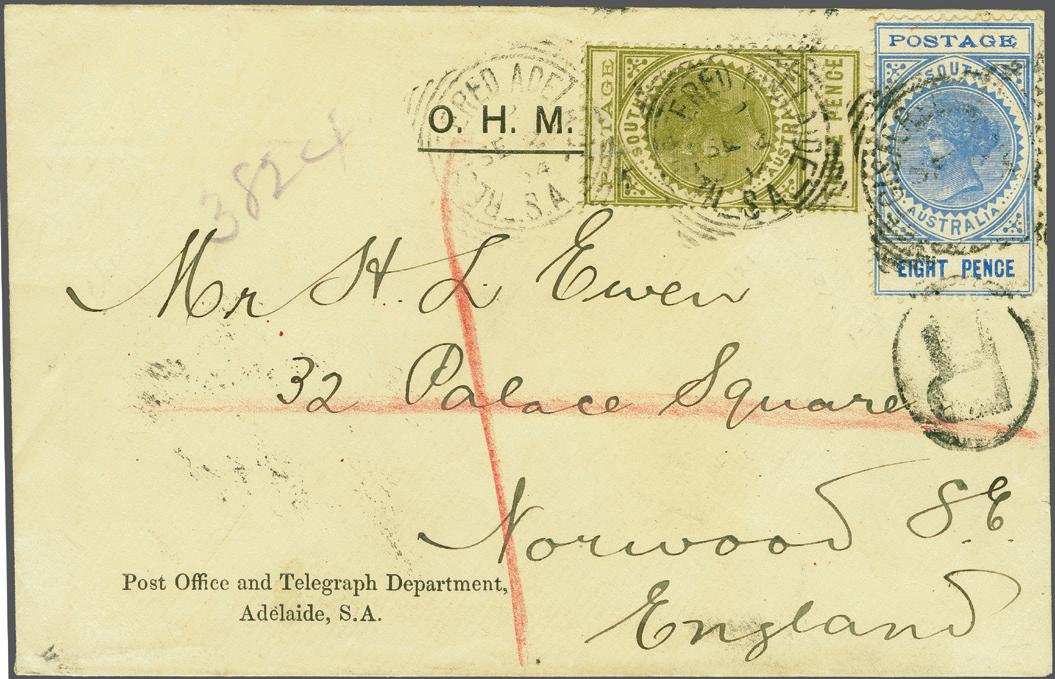 O. H. M.
POSTAGE
SOUTH
AUSTRALIA
PENCE
POSTAGE
SOUTH
AUSTRALIA
EIGHT PENCE
S.A
S.A
R
3824
Mr H. L. Ewen
32 Palace Square
Norwood S.E.
England
Post Office and Telegraph Department,
Adelaide, S.A.